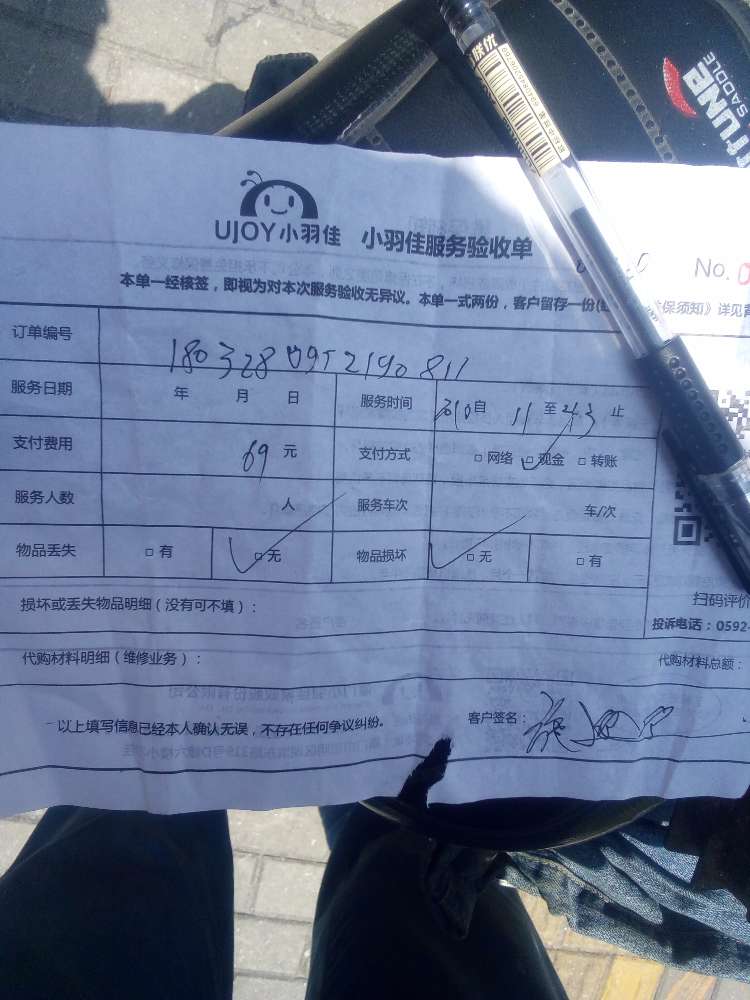 TUNE
SADDLE
UJOY小羽佳 小羽佳服务验收单
No.0
本单一经核签，即视为对本次服务验收无异议。本单一式两份，客户留存一份
保须知》详见背
订单编号 180328 0952190 811
服务日期 年 月 日 服务时间 自 11 至 43 止
支付费用 69 元 支付方式 □ 网络 □ 现金 □ 转账
服务人数 人 服务车次 车/次
物品丢失 □ 有 □ 无 物品损坏 □ 无 □ 有
扫码评价
损坏或丢失物品明细（没有可不填）：
投诉电话：0592-
代购材料明细（维修业务）： 代购材料总额：
以上填写信息已经本人确认无误，不存在任何争议纠纷。 客户签名：